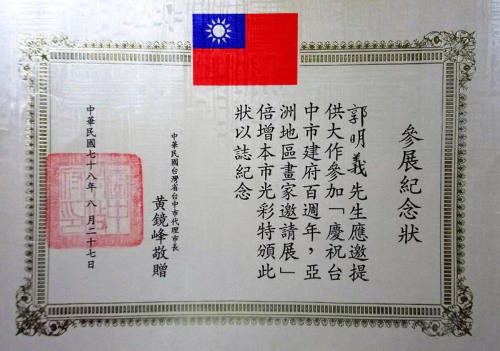 參展紀念狀
郭明義先生應邀提
供大作參加「慶祝台
中市建府百週年，亞
洲地區畫家邀請展」
倍增本市光彩特頒此
狀以誌紀念
中華民國台灣省台中市代理市長
黃鏡峰敬贈
中華民國七十八年 八月二十七日